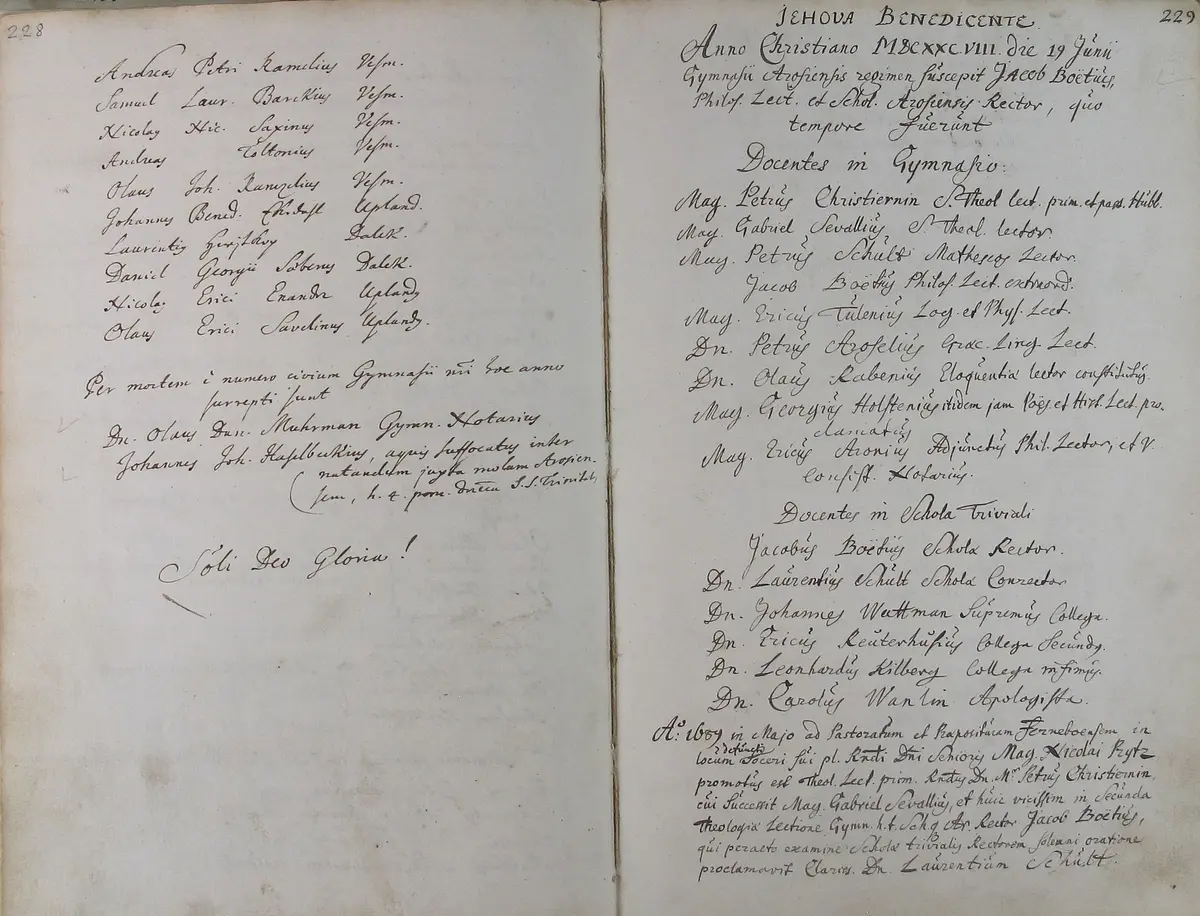 228
Andreas Petri Ramelius Vesm.
Samuel Laur. Barckius Vesm.
Nicolaq Nic. Saxinus Vesm.
Andreas Toltonius Vesm.
Olaus Joh. Vesm.
Johannes Bened. Upland.
Laurentiq Dalek.
Daniel Georgii Dalek.
Nicolaq Erici Enander Uplandq
Olaus Erici Savelinus Uplandq.
Per mortem è numero civium Gymnasii nr̄i hoc anno
surrepti sunt
Dn. Olaus Dan. Muhrman Gymn. Notarius
Johannes Joh. Haselbeckius, aquis suffocatus inter
natandum juxta molam Arosien-
sem, h. 4. pom. S.S. Trinitat.
Soli Deo Gloria!
229
JEHOVA BENEDICENTE
Anno Christiano MDCXXCVIII. die 19 Junii
Gymnasii Arosiensis regimen suscepit Jacob Boëtius,
Philos. Lect. et Schol. Arosiensis Rector, quo
tempore fuerunt
Docentes in Gymnasio:
Mag. Petrus Christiernin S. Theol lect. prim. et pass. Hubb.
Mag. Gabriel Sevallius S. Theol. lector
Mag. Petrus Schult Matheseos Lector.
Jacob Boëtius Philos. Lect. extraord.
Mag. Ericus Tulenius Log. et Phys. Lect.
Dn. Petrus Aroselius Græc. Ling Lect.
Dn. Olaus Rabenius Eloquentiæ lector constitutus.
Mag. Georgius Holstenius itidem jam Poës. et Hist. Lect. pro.
clamatus
Mag. Ericus Aronius Adjunctus Phil. Lector, et V.
Consist. Notarius.
Docentes in Schola Triviali
Jacobus Boëtius Scholæ Rector.
Dn. Laurentius Schult Scholæ Conrector
Dn. Johannes Wattman Supremus Collega.
Dn. Ericus Reuterhusius Collega Secundq.
Dn. Leonhardus Kilberg Collega infimus.
Dn. Carolus Wanlin Apologista.
Aº. 1689 in Majo ad Pastoratum et Præposituram Ferneboensem in
defuncti
locum Soceri sui pl. Rndi Dni Senioris Mag. Nicolai Prytz
promotus est Theol. Lect. prim. Rndus Dn. Mr Petrus Christiernin,
cui Successit Mag. Gabriel Sevallius, et huic vicissim in Secunda
Theologiæ Lectione Gymn. h.t. Sch. Ar. Rector Jacob Boëtius,
qui peracto examine Scholæ trivialis Rectorem solenni oratione
proclamavit Clariss. Dn. Laurentium Schult.